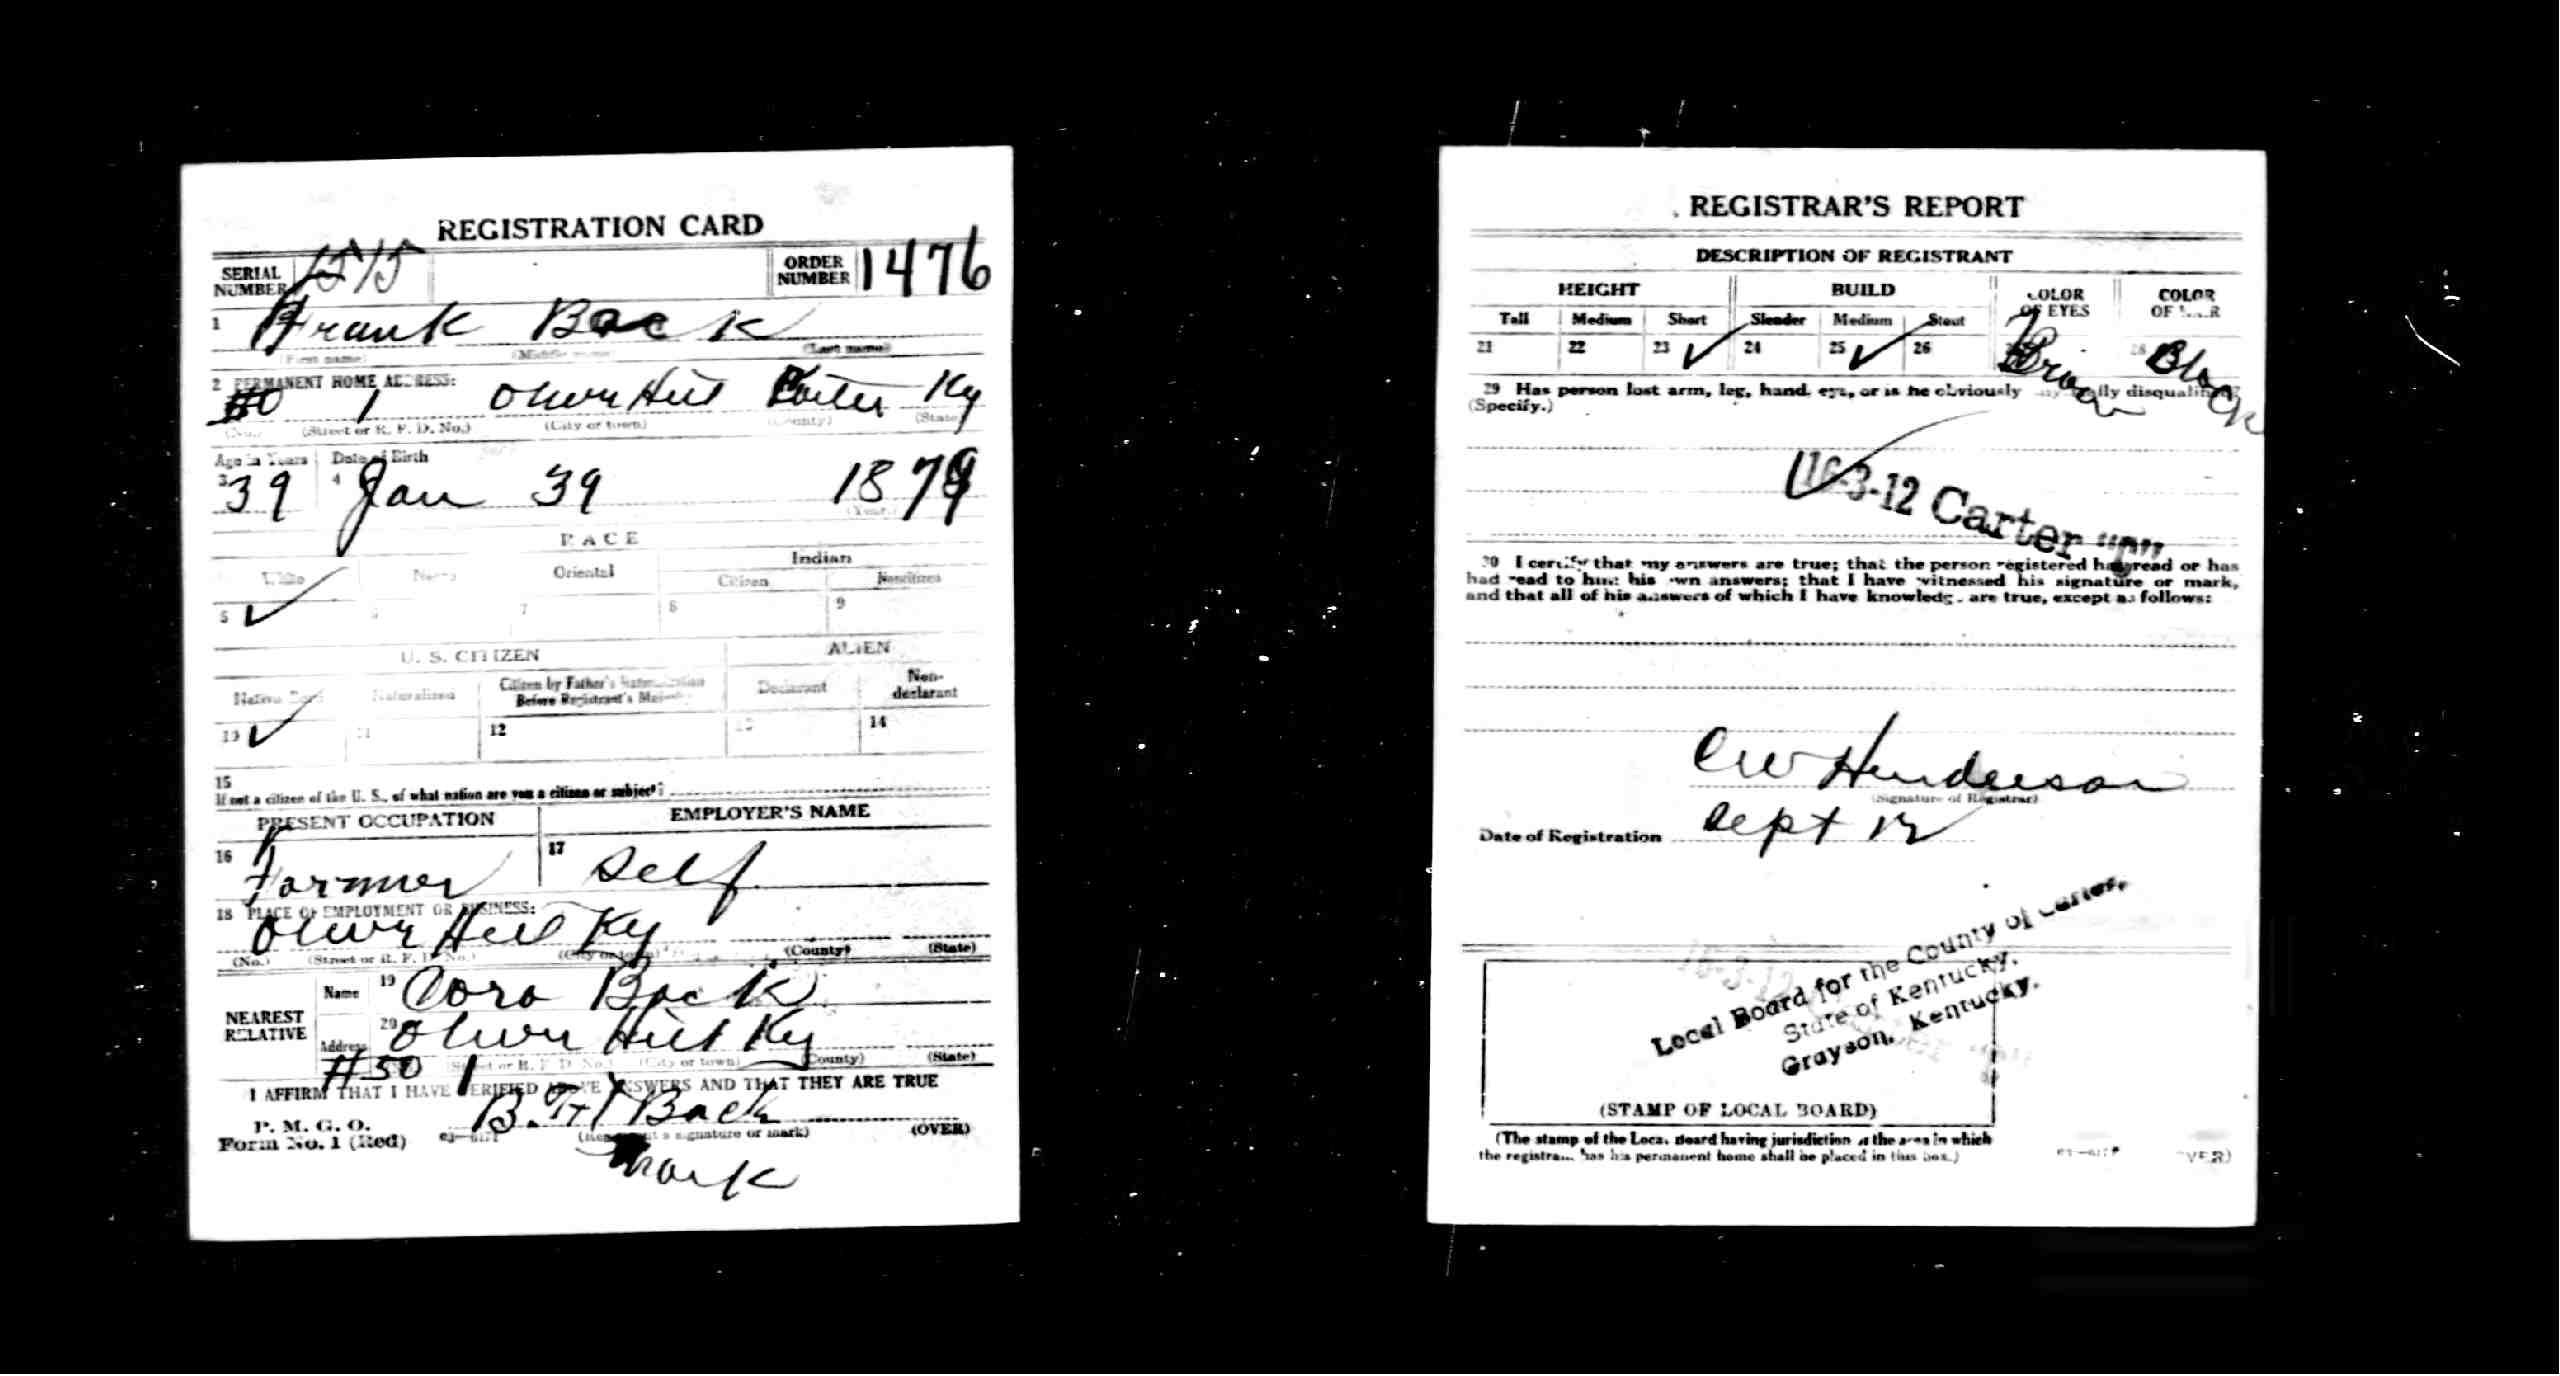 REGISTRATION CARD
SERIAL NUMBER 1515 ORDER NUMBER 1476
1 Frank Back
(First name) (Middle name) (Last name)
2 PERMANENT HOME ADDRESS:
1 Olive Hill Carter Ky
(No.) (Street or R. F. D. No.) (City or town) (County) (State)
Age in Years Date of Birth
3 39 4 Jan 39 1879
(Year.)
RACE
White Negro Oriental Indian
Citizen Noncitizen
5 ✓ 6 7 8 9
U. S. CITIZEN ALIEN
Native Born Naturalized Citizen by Father's Naturalization Before Registrant's Majority Declarant Non-declarant
10 ✓ 11 12 13 14
15
If not a citizen of the U. S., of what nation are you a citizen or subject?
PRESENT OCCUPATION EMPLOYER'S NAME
16 Farmer 17 Self
18 PLACE OF EMPLOYMENT OR BUSINESS:
Olive Hill Ky
(No.) (Street or R. F. D. No.) (City or town) (County) (State)
NEAREST RELATIVE Name 19 Cora Back
Address 20 Olive Hill Ky
#50 1 (Street or R. F. D. No.) (City or town) (County) (State)
I AFFIRM THAT I HAVE VERIFIED ABOVE ANSWERS AND THAT THEY ARE TRUE
P. M. G. O.
Form No. 1 (Red) B. F. X Back
(Registrant's signature or mark) (OVER)
mark
REGISTRAR'S REPORT
DESCRIPTION OF REGISTRANT
HEIGHT BUILD COLOR OF EYES COLOR OF HAIR
Tall Medium Short Slender Medium Stout
21 22 23 ✓ 24 25 ✓ 26 Brown 28 Black
29 Has person lost arm, leg, hand, eye, or is he obviously physically disqualified?
(Specify.)
16-3-12 Carter "C"
30 I certify that my answers are true; that the person registered has read or has
had read to him his own answers; that I have witnessed his signature or mark,
and that all of his answers of which I have knowledge are true, except as follows:
C W Henderson
(Signature of Registrar)
Date of Registration Sept 12
Local Board for the County of Carter,
State of Kentucky,
Grayson, Kentucky.
(STAMP OF LOCAL BOARD)
(The stamp of the Local Board having jurisdiction of the area in which
the registrant has his permanent home shall be placed in this box.)
(OVER)